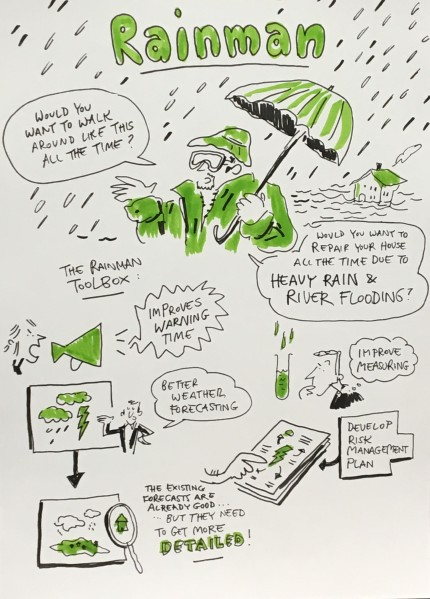 Rainman
WOULD YOU
WANT TO WALK
AROUND LIKE THIS
ALL THE TIME?
WOULD YOU WANT TO
REPAIR YOUR HOUSE
ALL THE TIME DUE TO
HEAVY RAIN &
RIVER FLOODING?
THE RAINMAN
TOOLBOX:
IMPROVES
WARNING
TIME
IMPROVE
MEASURING
BETTER
WEATHER
FORECASTING
DEVELOP
RISK
MANAGEMENT
PLAN
THE EXISTING
FORECASTS ARE
ALREADY GOOD...
... BUT THEY NEED
TO GET MORE
DETAILED!